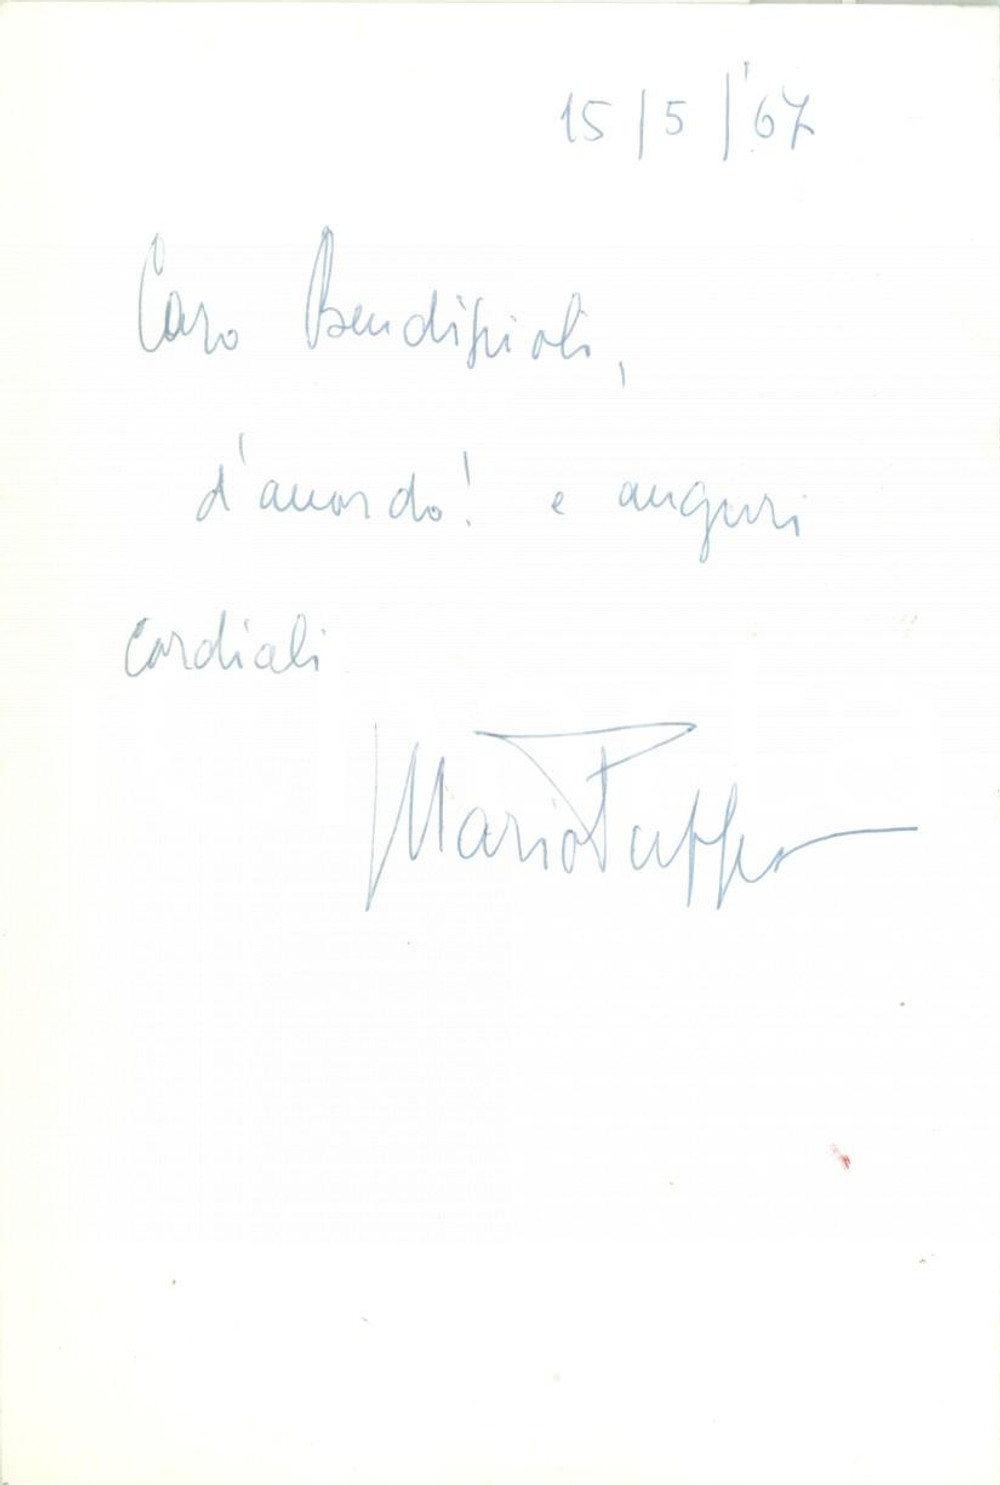 15/5/'67
Caro Bendiscioli,
d'accordo! e auguri
cordiali
Mario